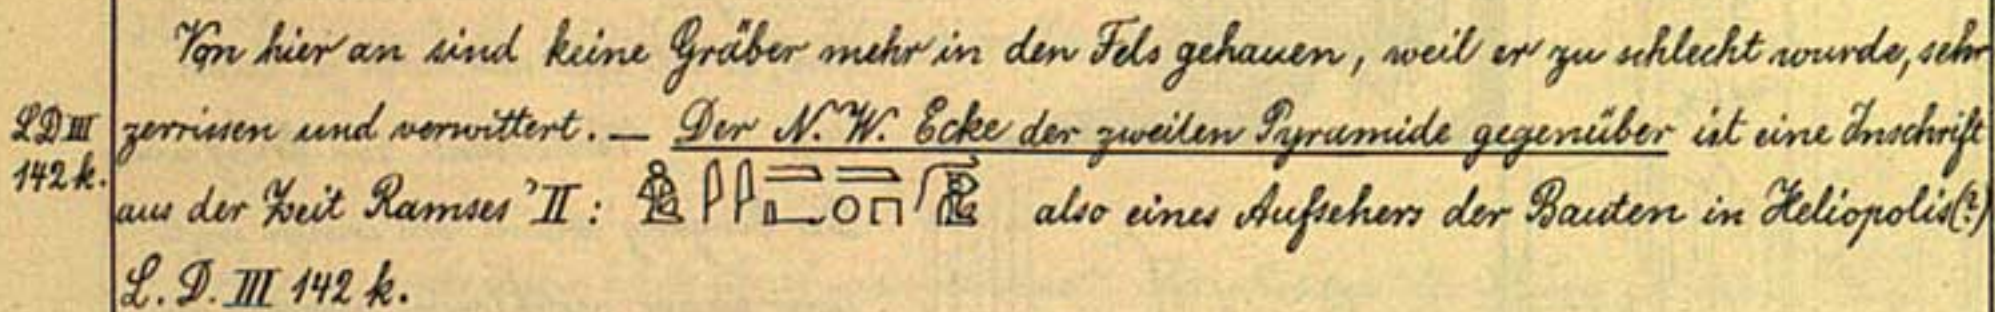 Von hier an sind keine Gräber mehr in den Fels gehauen, weil er zu schlecht wurde, sehr
LD III zerrissen und verwittert. — Der N. W. Ecke der zweiten Pyramide gegenüber ist eine Inschrift
142 k. aus der Zeit Ramses' II: also eines Aufsehers der Bauten in Heliopolis(?)
L. D. III 142 k.